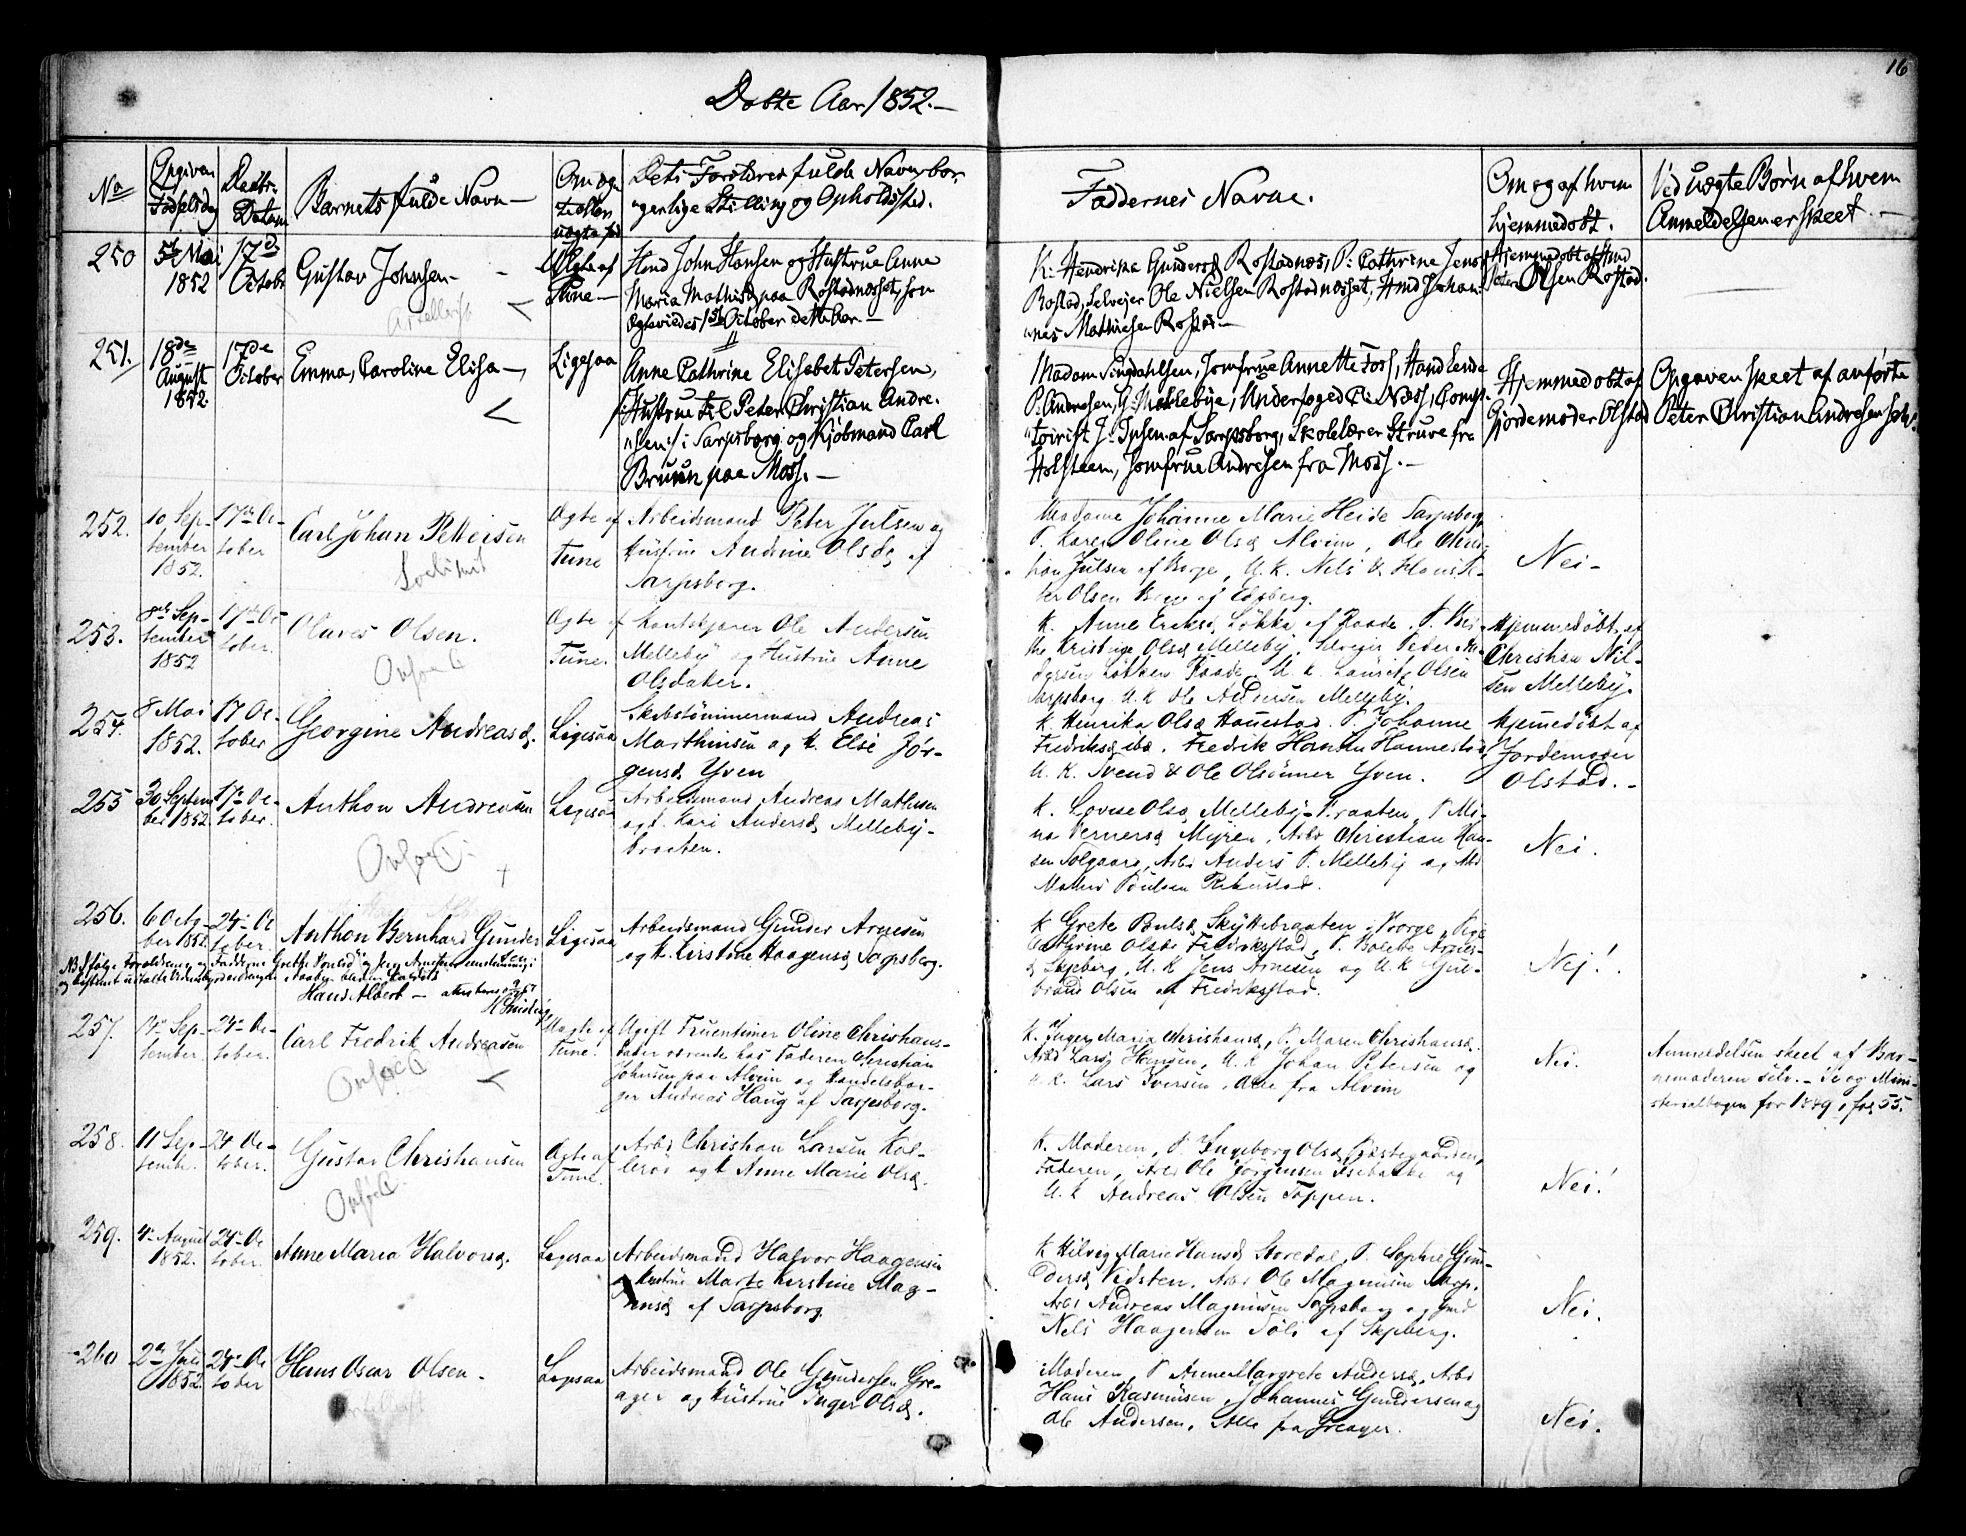 16
Døbte Aar 1852.—
No
Opgiven Fødselsdag
Daabs-Datum
Barnets fulde Navn —
Om ægte eller uægte fød
Dets Forældres fulde Navn, borgerlige Stilling og Opholdssted.
Faddernes Navne.
Om og af hvem hjemmedøbt.
Ved uægte Børn af hvem Anmeldelsen er skeet. —
250
5te Mai 1852
17de October
Gustav Johnsen —
Ægte af Tune —
Hmd John Hansen og Hustrue Anne
Maria Mathisd. paa Rostadnæsset, som
Ægteviedes 1ste October dette Aar. —
K: Hendrika Gundersd. Rostadnæs, P: Cathrine Jensd.
Rostad, Selveier Ole Nielsen Rostadnæsset, Hmd Johan-
nes Mathisen Rostad —
Hjemmedøbt af Hmd
Peter Olsen Rostad.
251.
18de August 1852
17de October
Emma, Caroline Elisa —,
Ligesaa
Anne Cathrine Elisabet Petersen,
/: Hustrue til Peter Christian Andre-
sen :/ i Sarpsborg og Kjøbmand Carl
Bruun paa Moss. —
Madam Singdahlsen, Jomfrue Annette Foss, Handlende
P. Andresen, G. Mellebye, Undersøged P: Næss, Comp-
toirist J. Ipsen af Sarpsborg, Skolelærer Struve fra
Holsteen, Jomfrue Andresen fra Moss. —
Hjemmedøbt af
Gjordemoder Olstad
Opgaven skeet af anførte
Peter Christian Andresen selv.
252.
10 September 1852.
17de October
Carl Johan Pettersen
Ægte af Tune
Arbeidsmand Peter Julsen og
Hustrue Andrine Olsd. af
Sarpsborg.
Madame Johanne Marie Heide Sarpsborg
P. Karen Oline Olsd. Alvim, Ole Chris-
U. K. Nels
Nei —
253.
8de September 1852
17de October.
Olaves Olsen.
Anført
Ægte af Tune.
Ole Andersen
Melleby og Hustrue Anne
Olsdatter.
K. Anne Løkke af Raade. P.
Olsd. Melleby, Selveier Peder
Løkken Raade, U. K. Laurits Olsen
Sarpsborg U. K. Ole Andersen Melleby.
Hjemmedøbt af
Christian Nil-
sen Melleby.
254.
8 Mai 1852.
17 October
Georgine Andreasd.
Ligesaa
Skibstømmermand Andreas
Marthinsen og K. Else Jør-
gensd. Yven
K. Henrika Olsd. Hannestad. P. Johanne
Fredriksd. ibd. Fredrik Hansen Hannestad,
U. K. Svend & Ole Olsønner Yven.
Hjemedøbt af
Jordemoder
Olstad. —
255
30 September 1852
17de October.
Anthon Andreasen
Anført
Ligesaa
Arbeidsmand Andreas Mathisen
og K. Kari Andersd. Melleby-
braaten.
K. Lovise Olsd. Melleby-Braaten, P. Mi-
na Vernersd. Myren, Arbd Christian Han-
sen Solgaard, Arbd Anders P. Melleby og Arbd
Nei.
256.
6 October 1852
24de October
Anthon Bernhard Gundersen
Ligesaa
Arbeidsmand Gunder Arnesen
og K. Kirstine Haagensd. Sarpsborg.
Hans Albert —
K Grete
U. K Jens Arnesen og U. K Gul-
brand Olsen af Fredrikstad.
Nej!
257.
September
24de October.
Carl Fredrik Andreasen
Anført
Uægte af Tune.
Ugift Fruentimer Oline Christians-
datter værende hos Faderen Christian
Johnsen paa Alvim og Handelsbor-
ger Andreas Haug af Sarpsborg.
K. Inger Maria Christiansd., P. Maren Christiansd.
Arbd Lars Hansen, U. K Johan Petersen og
U. K. Lars Iversen, Alle fra Alvim
Nei.
Anmeldelsen skeet af Bar-
nemoderen selv. — Se og Mini-
sterialbogen for 1849, fol 55.
258.
11 September
24 October.
Gustav Christiansen
Anført
Ægte af Tune.
Arbd Christian Larsen Kol-
lerød og K Anne Marie Olsd.
K. Moderen, P. Ingeborg Olsd. Prestegaarden,
Faderen, Arbd Ole Jørgensen og
U. K Andreas Olsen Toppen.
Nei!
259.
4de August 1852.
24de October.
Anne Maria Halvorsd.
Ligesaa
Arbeidsmand Halvor Haagensen
og Hustrue Marte Kirstine Mag-
nusd. af Sarpsborg.
K Hilvig Marie Hansd. Storedal, P. Sophie Gun-
dersd. Vidsten, Arbd Ole Magnusen Sarp,
Arbd Andreas Magnusen Sarpsborg og Hmd
Nels Haagensen Søli af Skjeberg.
Nei.
260
1852.
24de October
Hans Oscar Olsen.
Ligesaa
Arbeidsmand Ole Gundersen Gre-
ager og Hustrue Inger Olsd.
Moderen, P. Anne Margrete Andersd., Arbd
Hans Rasmusen, Johannes Gundersen og
Ole Andersen, Alle fra Greager.
Nei.